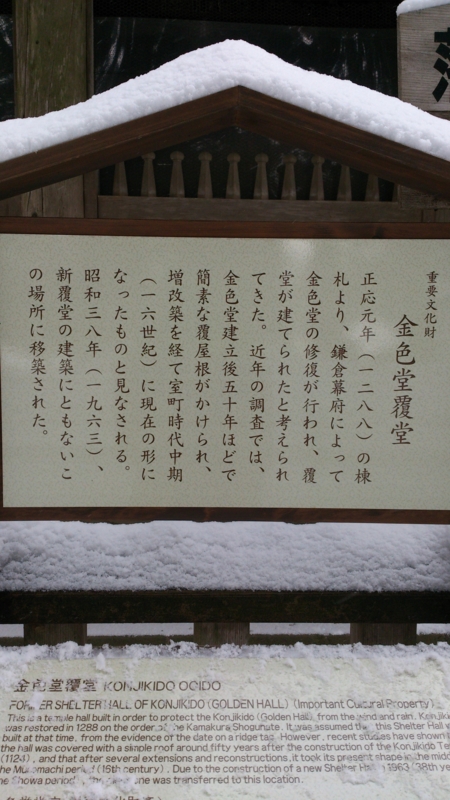 重要文化財
金色堂覆堂
正応元年（一二八八）の棟
札より、鎌倉幕府によって
金色堂の修復が行われ、覆
堂が建てられたと考えられ
てきた。近年の調査では、
金色堂建立後五十年ほどで
簡素な覆屋根がかけられ、
増改築を経て室町時代中期
（一六世紀）に現在の形に
なったものと見なされる。
昭和三八年（一九六三）、
新覆堂の建築にともないこ
の場所に移築された。
金色堂覆堂 KONJIKIDO OOIDO
FORMER SHELTER HALL OF KONJIKIDO (GOLDEN HALL) (Important Cultural Property)
This is a temple hall built in order to protect the Konjikido (Golden Hall) from the wind and rain.
was restored in 1288 on the order of the Kamakura Shogunate. It was assumed that this Shelter Hall
built at that time, from the evidence of the date on a ridge tag. However, recent studies have shown
the hall was covered with a simple roof around fifty years after the construction of the Konjikido
(1124), and that after several extensions and reconstructions, it took its present shape in the
the Muromachi period (16th century). Due to the construction of a new Shelter Hall in 1963 (38th
the Showa period), the was transferred to this location.